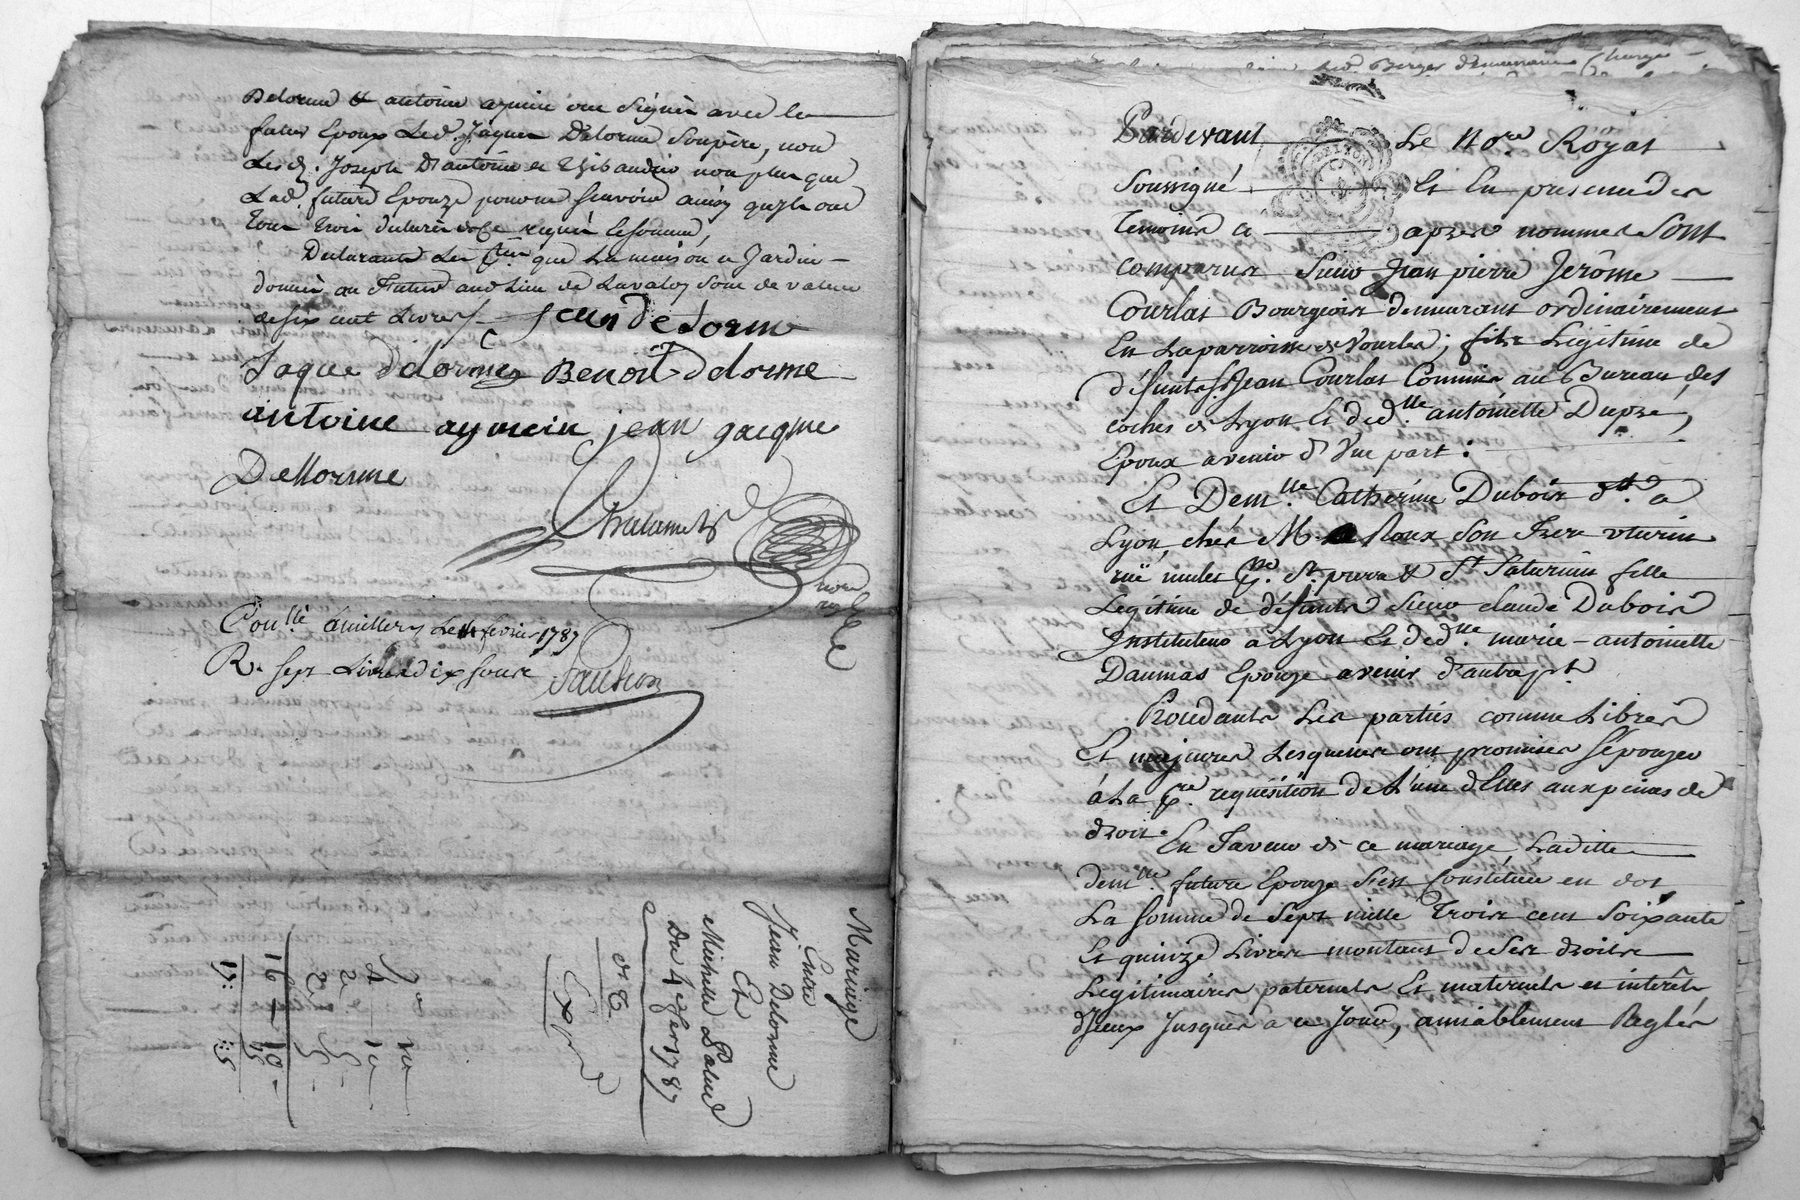 Delorme & antoine aymein ont Signés avec le
futur Epoux Led. Jâques Delorme Son père, non
Led. Joseph D'antoine et Thibaudier non plus que
Lad. future Epouze pour ne sçavoir ainsy qu'yls ont
tous trois déclarés de ce requis & sommés,
Déclarants Les Pties que La maison & Jardin
donnés au Futur aud. Lieu de Lavaloy sont de valeur
de six cent Livres /. jean delorme
Jaque delorme Benoît delorme
antoine aymein jean jacque
Dellorme
not
roy
Con.llé à millery Le 14 fevrier 1787
R. sept Livres dix sous
Mariage
Entre
Jean Delorme
Et
Michelle
Du 4 fer. 1787
Exp
10
4 10
16 10
17: :5
Pardevant Le No.re Royal
soussigné Et En presence des
temoins cy après nommés Sont
comparus Sieur Jean pierre Jerôme
Courlat Bourgeois demeurant ordinairement
En La parroisse de Vourles, fils Légitime de
défunts S.r Jean Courlat Commis au Bureau des
coches de Lyon Et de d.lle antoinette Dupré,
Epoux avenir d'Une part:
Et Dem.lle Catherine Dubois d.tte a
Lyon, chés M. Roux Son Frere
ruë mulet p.sse St. pierre & St Saturnin fille
Legitime de défunts Sieur claude Dubois
Instituteur à Lyon Et de d.lle marie-antoinette
Daumas Epouze avenir d'autre p.t
Procédants Les parties comme Libres
Et majeures Lesquelles ont promises S'épouzer
à La p.re requisition de L'une d'Elles aux peines de
droit.
En Faveur de ce mariage Laditte
dem.lle future Epouze s'est Constituée en dot
La somme de Sept mille Trois cent Soixante
Et quinze Livres montant de Ses droits
Legitimaires paternels Et maternels et intérêts
d'Yceux Jusques a ce Jour, amiablement Reglés